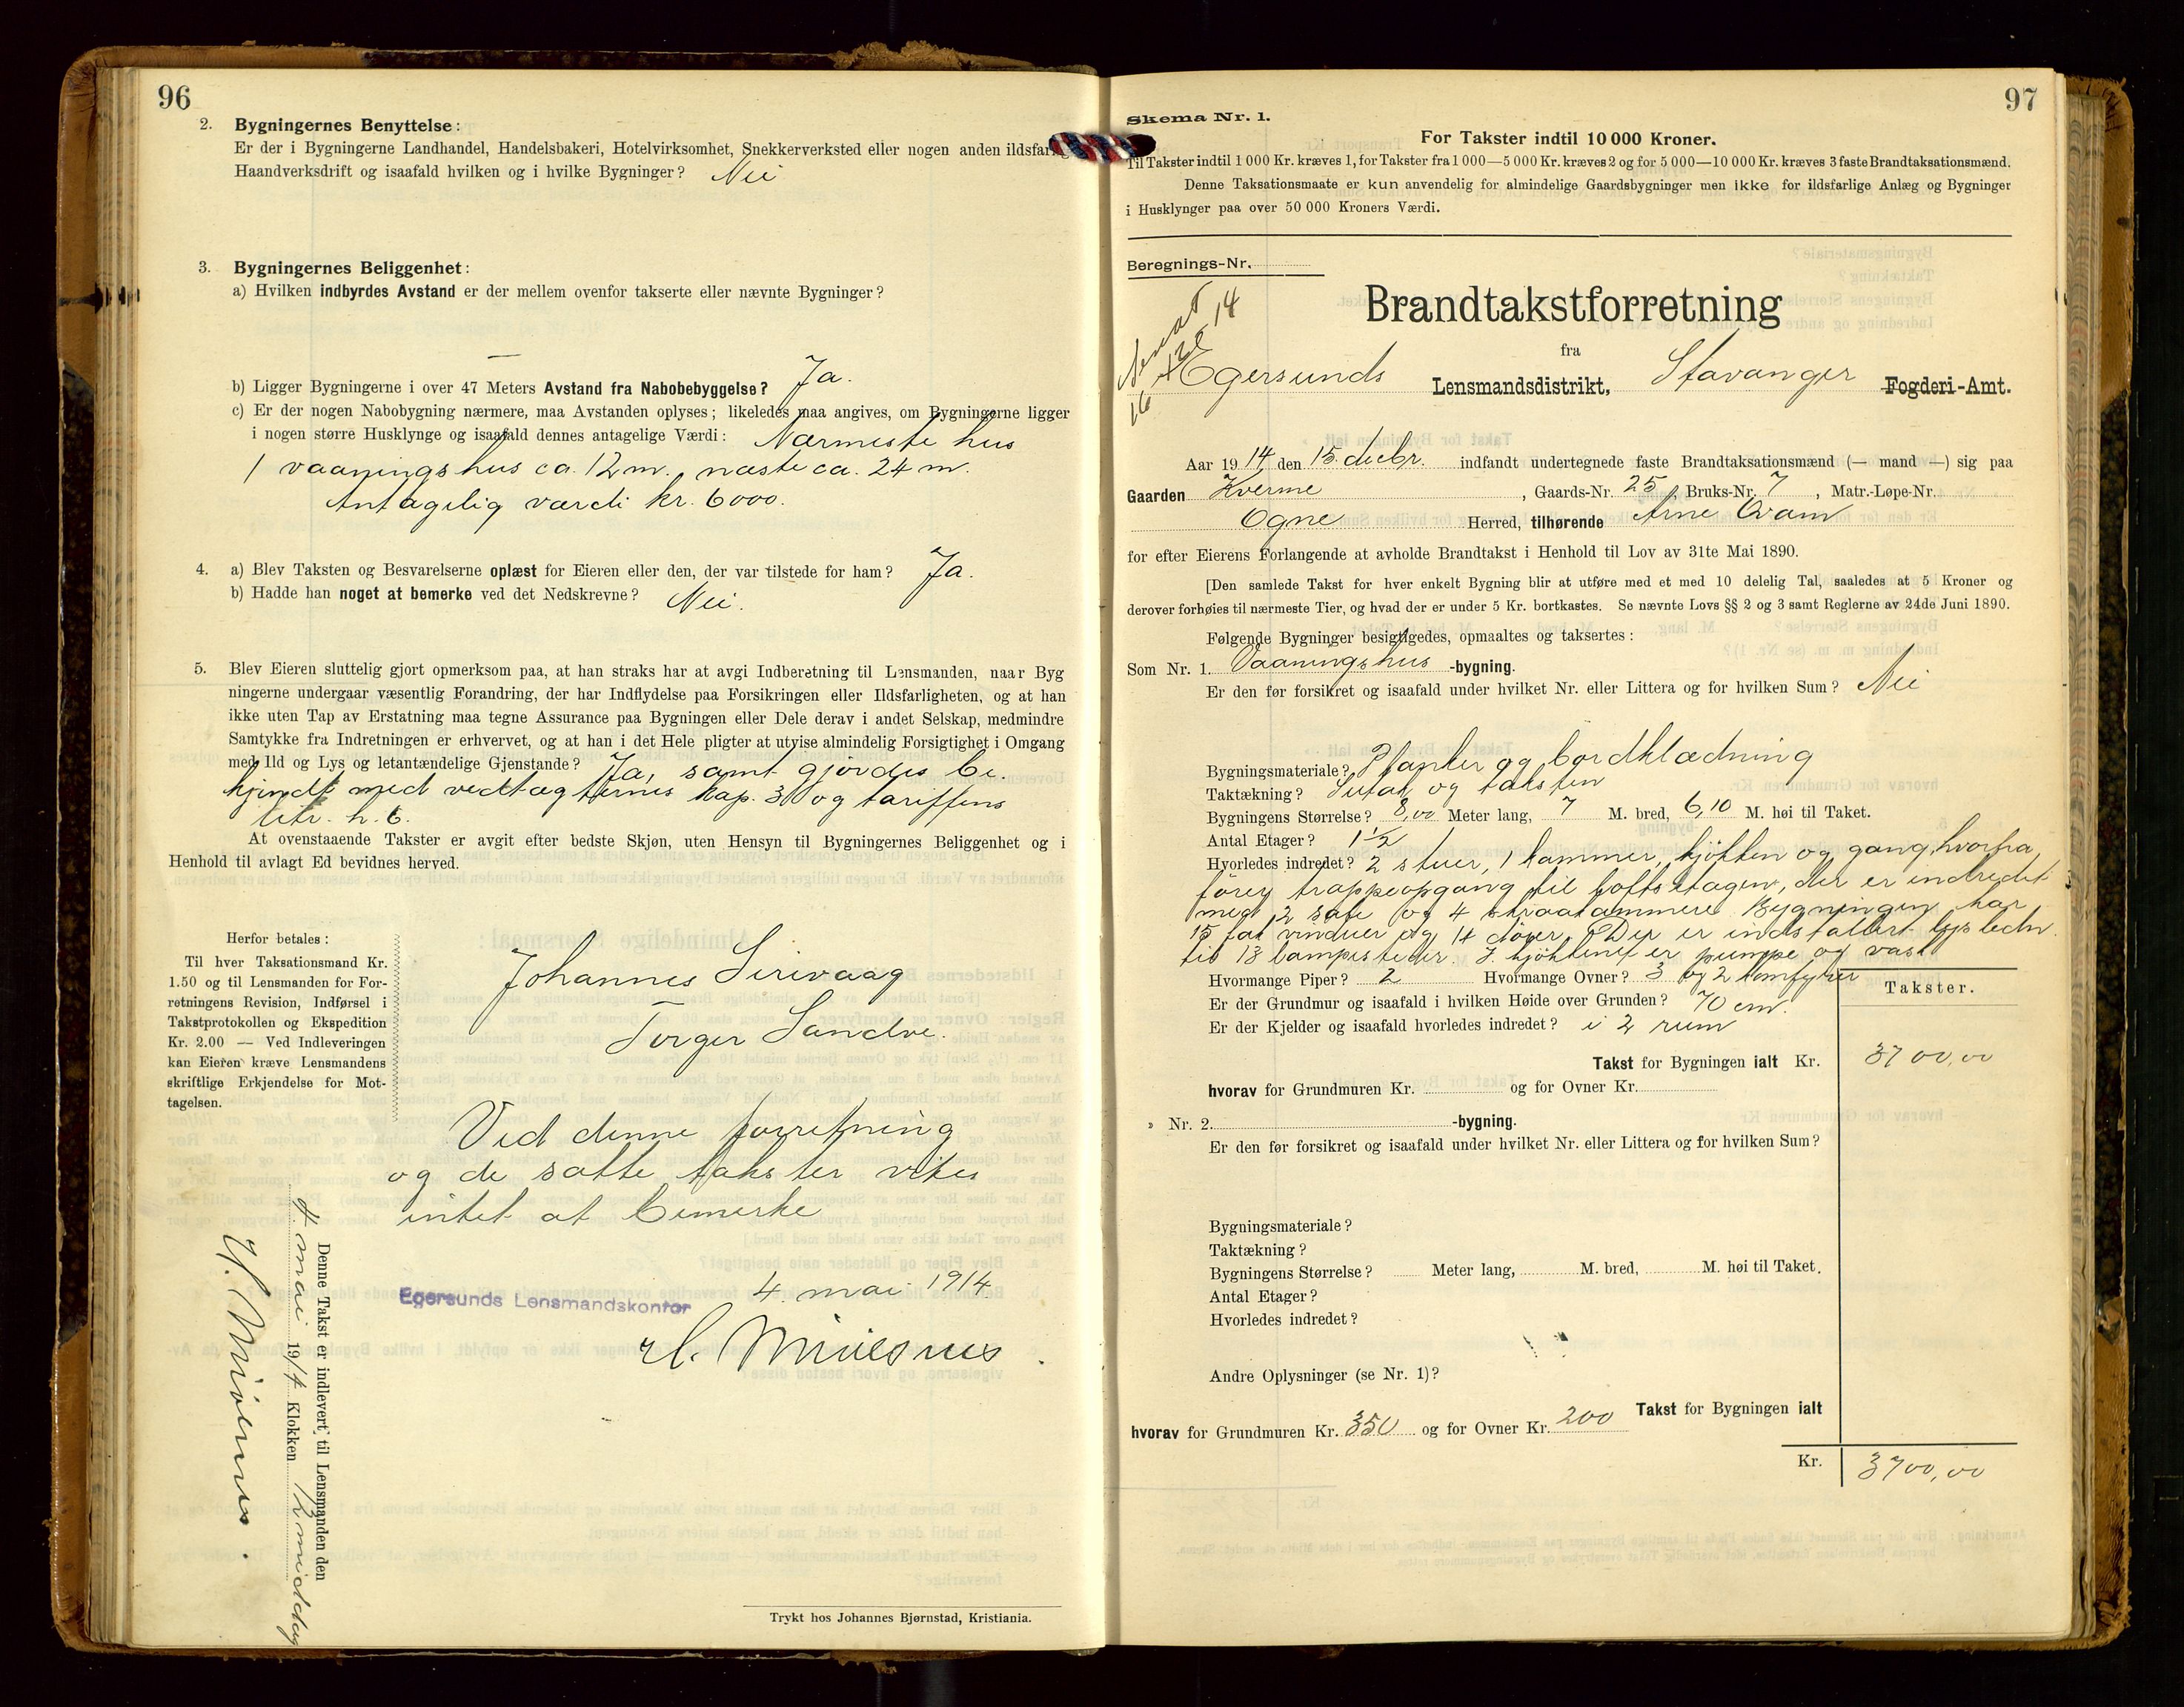 96
2. Bygningernes Benyttelse:
Er der i Bygningerne Landhandel, Handelsbakeri, Hotelvirksomhet, Snekkerverksted eller nogen anden ildsfarlig
Haandverksdrift og isaafald hvilken og i hvilke Bygninger? Nei
3. Bygningernes Beliggenhet:
a) Hvilken indbyrdes Avstand er der mellem ovenfor takserte eller nævnte Bygninger?
—
b) Ligger Bygningerne i over 47 Meters Avstand fra Nabobebyggelse? Ja.
c) Er der nogen Nabobygning nærmere, maa Avstanden oplyses; likeledes maa angives, om Bygningerne ligger
i nogen større Husklynge og isaafald dennes antagelige Værdi: Nærmeste hus
1 vaaningshus ca. 12 m. næste ca. 24 m.
Antagelig værdi kr. 6000.
4. a) Blev Taksten og Besvarelserne oplæst for Eieren eller den, der var tilstede for ham? Ja.
b) Hadde han noget at bemerke ved det Nedskrevne? Nei.
5. Blev Eieren sluttelig gjort opmerksom paa, at han straks har at avgi Indberetning til Lensmanden, naar Byg
ningerne undergaar væsentlig Forandring, der har Indflydelse paa Forsikringen eller Ildsfarligheten, og at han
ikke uten Tap av Erstatning maa tegne Assurance paa Bygningen eller Dele derav i andet Selskap, medmindre
Samtykke fra Indretningen er erhvervet, og at han i det Hele pligter at utvise almindelig Forsigtighet i Omgang
med Ild og Lys og letantændelige Gjenstande? Ja, samt gjordes be-
kjendt med vedtægternes kap. 3 og tariffens
litr. h. 6.
At ovenstaaende Takster er avgit efter bedste Skjøn, uten Hensyn til Bygningernes Beliggenhet og i
Henhold til avlagt Ed bevidnes herved.
Herfor betales:
Til hver Taksationsmand Kr.
1.50 og til Lensmanden for For-
retningens Revision, Indførsel i
Takstprotokollen og Ekspedition
Kr. 2.00 — Ved Indleveringen
kan Eieren kræve Lensmandens
skriftlige Erkjendelse for Mot-
tagelsen.
Johannes Sirevaag
Torger Sandve.
Ved denne forretning
og de satte takster vites
intet at bemerke
Egersunds Lensmandskontor 4 mai 1914.
Denne Takst er indlevert til Lensmanden den
4 mai 1914 Klokken 12 middag
Trykt hos Johannes Bjørnstad, Kristiania.
97
Skema Nr. 1.
For Takster indtil 10 000 Kroner.
Til Takster indtil 1 000 Kr. kræves 1, for Takster fra 1 000—5 000 Kr. kræves 2 og for 5 000—10 000 Kr. kræves 3 faste Brandtaksationsmænd.
Denne Taksationsmaate er kun anvendelig for almindelige Gaardsbygninger men ikke for ildsfarlige Anlæg og Bygninger
i Husklynger paa over 50 000 Kroners Værdi.
Beregnings-Nr.
Brandtakstforretning
fra
Egersunds Lensmandsdistrikt, Stavanger Fogderi-Amt.
Aar 1914 den 15. decbr. indfandt undertegnede faste Brandtaksationsmænd (— mand —) sig paa
Gaarden Kverme, Gaards-Nr. 25, Bruks-Nr. 7, Matr.-Løpe-Nr.
Ogne Herred, tilhørende Arne Kvam
for efter Eierens Forlangende at avholde Brandtakst i Henhold til Lov av 31te Mai 1890.
[Den samlede Takst for hver enkelt Bygning blir at utføre med et med 10 delelig Tal, saaledes at 5 Kroner og
derover forhøies til nærmeste Tier, og hvad der er under 5 Kr. bortkastes. Se nævnte Lovs §§ 2 og 3 samt Reglerne av 24de Juni 1890.
Følgende Bygninger besigtigedes, opmaaltes og taksertes:
Som Nr. 1. Vaaningshus -bygning.
Er den før forsikret og isaafald under hvilket Nr. eller Littera og for hvilken Sum? Nei
Bygningsmateriale? Planker og bordklædning
Taktækning? Sutak og taksten
Bygningens Størrelse? 8,00 Meter lang, 7 M. bred, 6,10 M. høi til Taket.
Antal Etager? 1½
Hvorledes indredet? 2 stuer, 1 kammer, kjøkken og gang, hvorfra
fører trappeopgang til loftsetagen, der er indredet
med 2 sale og 4 skraakammere. Bygningen har
15 fag vinduer og 14 dører. Der er installert lysledn.
til 13 lampesteder. I kjøkkenet er pumpe og vask
Hvormange Piper? 2 Hvormange Ovner? 3 og 2 komfyrer
Er der Grundmur og isaafald i hvilken Høide over Grunden? 70 cm.
Er der Kjelder og isaafald hvorledes indredet? i 2 rum
Takster.
Takst for Bygningen ialt Kr. 3700,00
hvorav for Grundmuren Kr. og for Ovner Kr.
» Nr. 2. -bygning.
Er den før forsikret og isaafald under hvilket Nr. eller Littera og for hvilken Sum?
Bygningsmateriale?
Taktækning?
Bygningens Størrelse? Meter lang, M. bred, M. høi til Taket.
Antal Etager?
Hvorledes indredet?
Andre Oplysninger (se Nr. 1)?
Takst for Bygningen ialt
hvorav for Grundmuren Kr. 350 og for Ovner Kr. 200
Kr. 3700,00